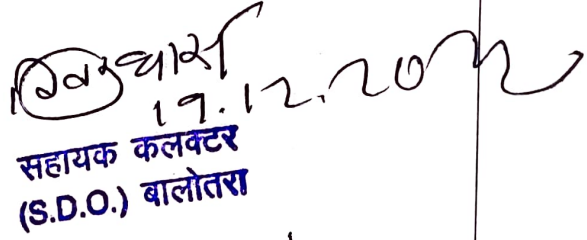 19.12.20
सहायक कलक्टर
(S.D.O.) बालोतरा